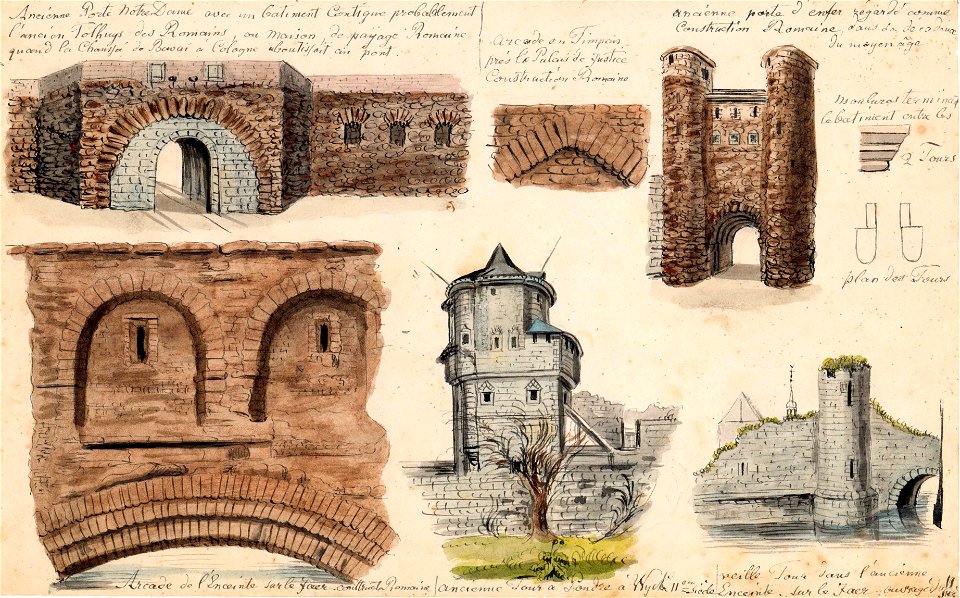 Ancienne Porte Notre Dame avec un batiment Contigue probablement
l'ancien Tolhuys des Romains, ou maison de payage Romaine
quand la Chaussé de Bavai a Cologne aboutissoit au pont
arcade en Timpan
près le Palais de Justice
Construction Romaine
ancienne porta d'enfer regardé comme
Construction Romaine, dans sa de
du moyenage
Moulures terminant
le batiment entre les
2 Tours
plan des Tours
Arcade de l'Enceinte sur le Jaer Romaine
ancienne Tour à à Wyck 11 en Siècle
veille Tour dans l'ancienne
Enceinte sur le Jaer ouvrage